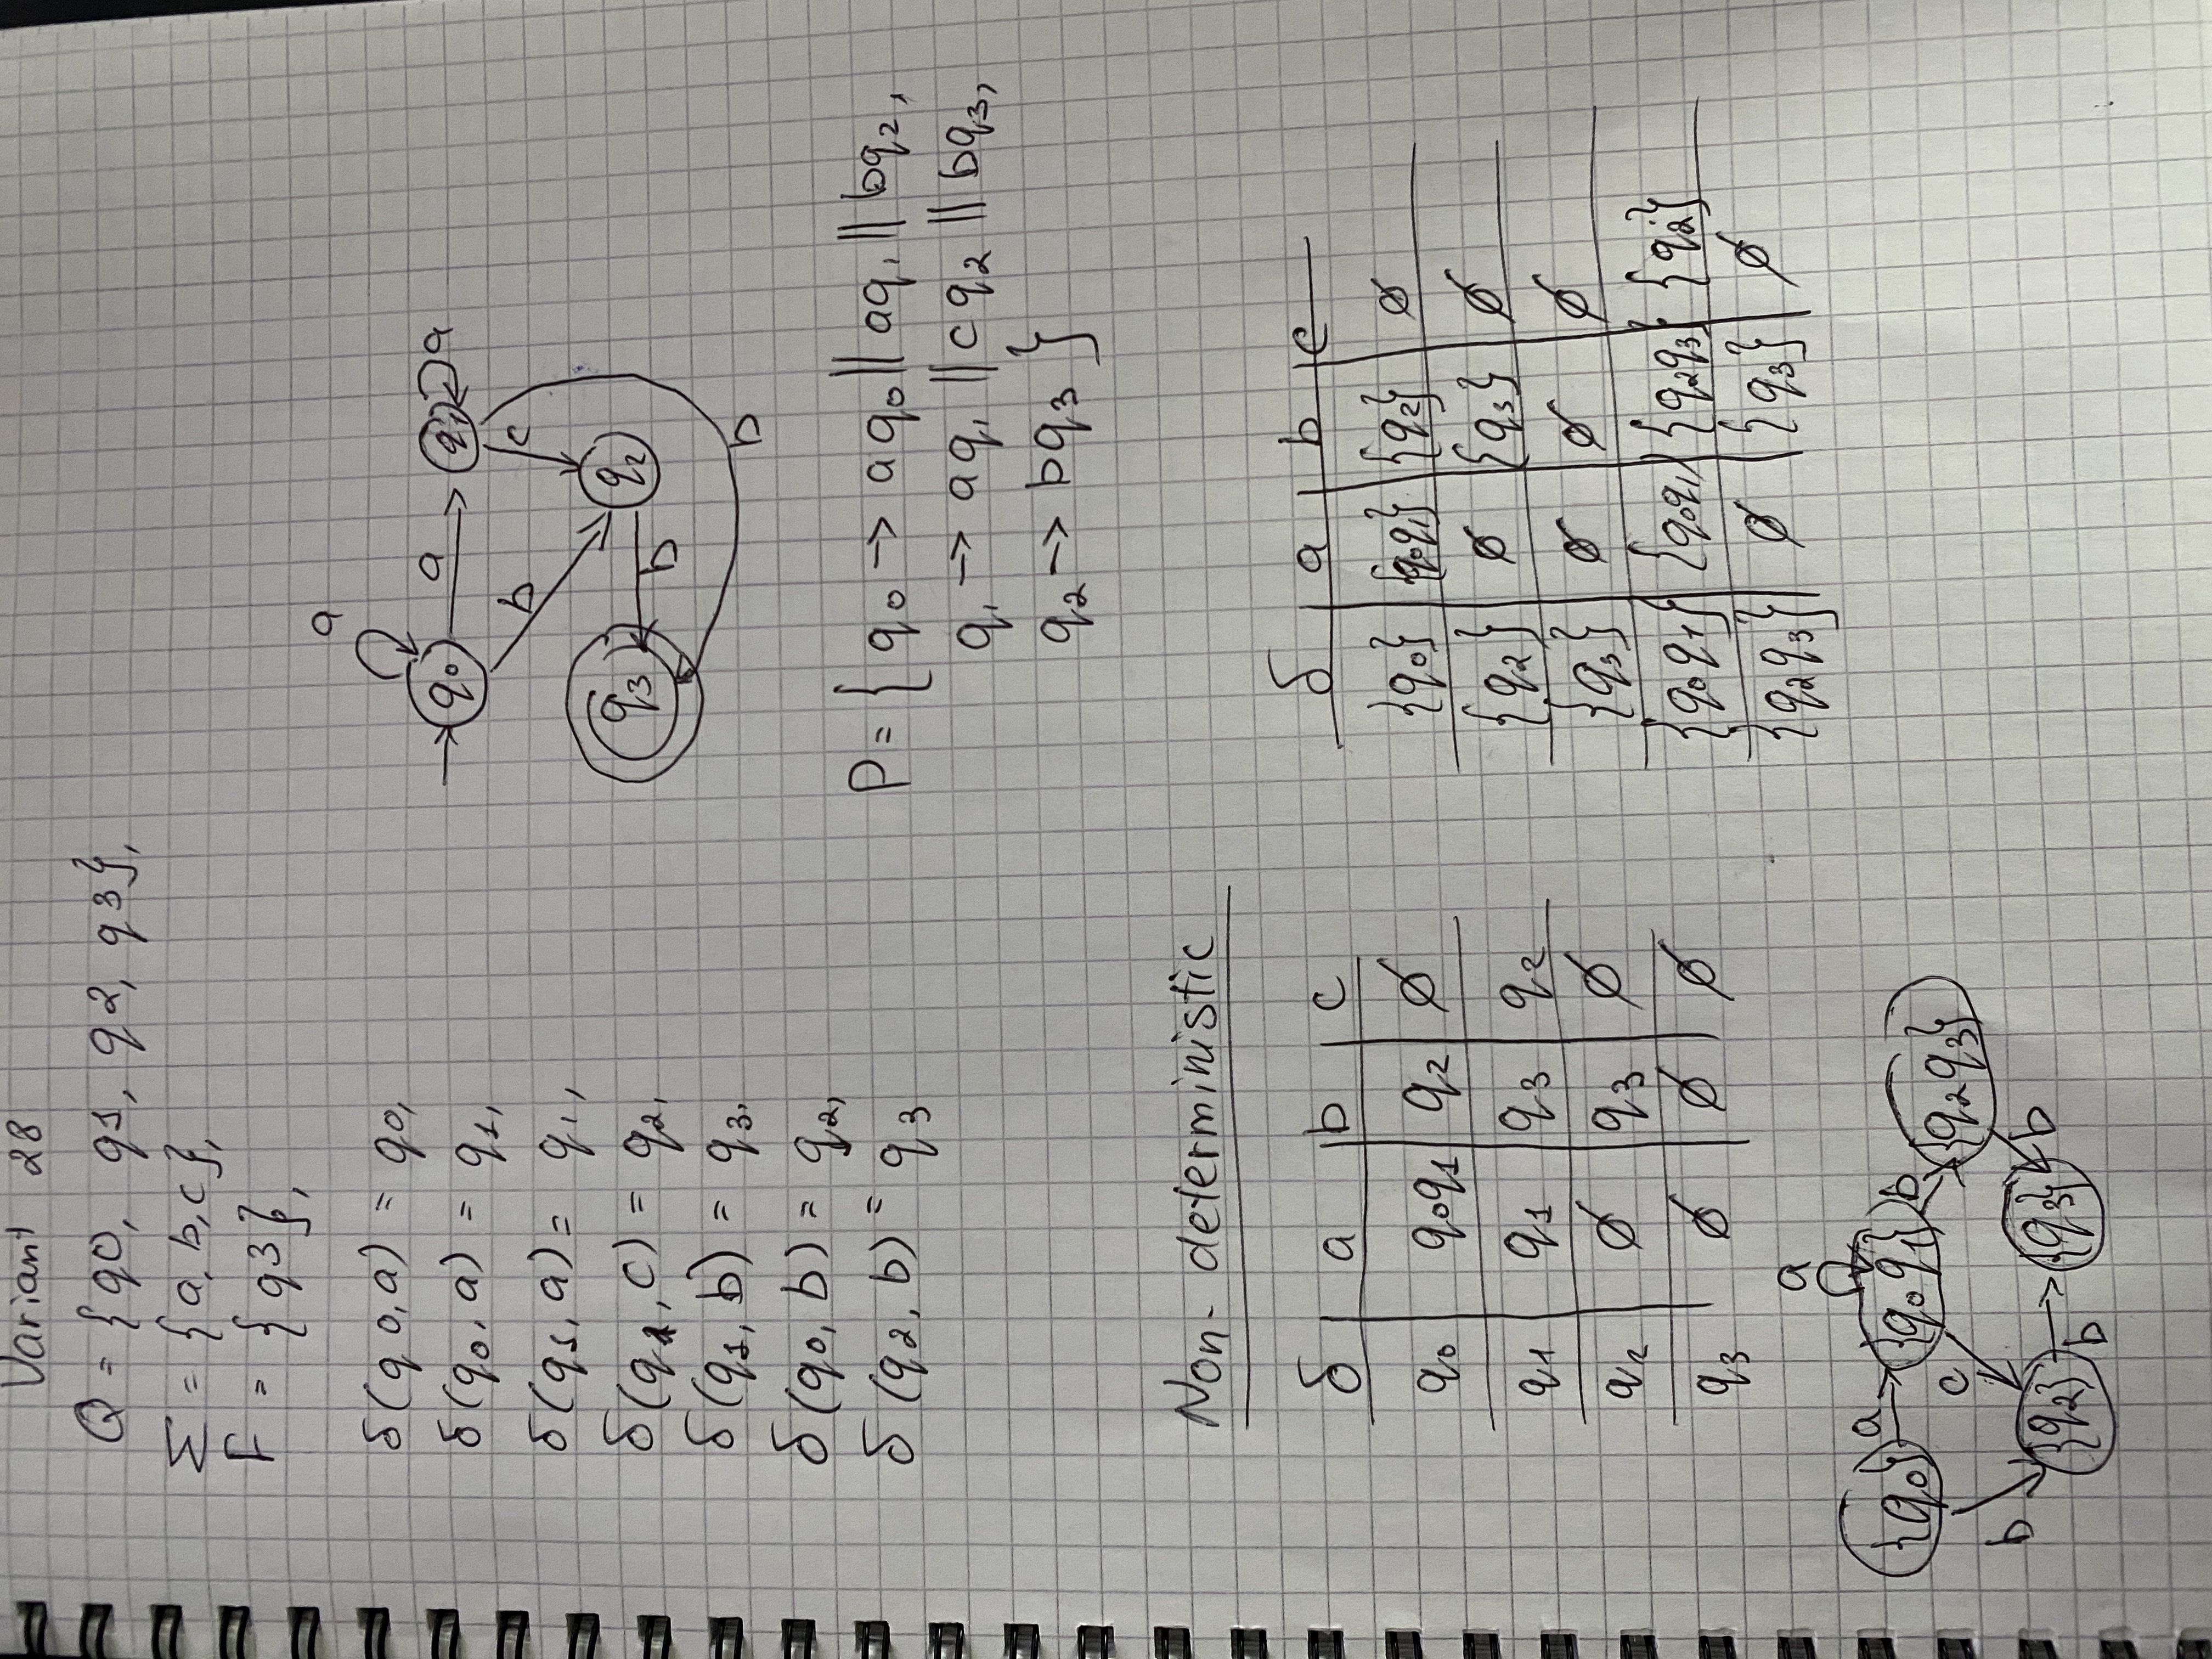 Variant 28
Q = {q0, q1, q2, q3},
Σ = {a, b, c},
F = {q3},
δ(q0, a) = q0,
δ(q0, a) = q1,
δ(q1, a) = q1,
δ(q1, c) = q2,
δ(q1, b) = q3,
δ(q0, b) = q2,
δ(q2, b) = q3
a
q0 a q1 a
b c
q3 b q2
b
P = { q0 → aq0 || aq1 || bq2,
q1 → aq1 || cq2 || bq3,
q2 → bq3 }
Non-deterministic
δ a b c
q0 q0q1 q2 ∅
q1 q1 q3 q2
q2 ∅ q3 ∅
q3 ∅ ∅ ∅
δ a b c
{q0} {q0q1} {q2} ∅
{q2} ∅ {q3} ∅
{q3} ∅ ∅ ∅
{q0q1} {q0q1} {q2q3} {q2}
{q2q3} ∅ {q3} ∅
a
{q0} a {q0q1} b {q2q3}
b c
{q2} b {q3} b